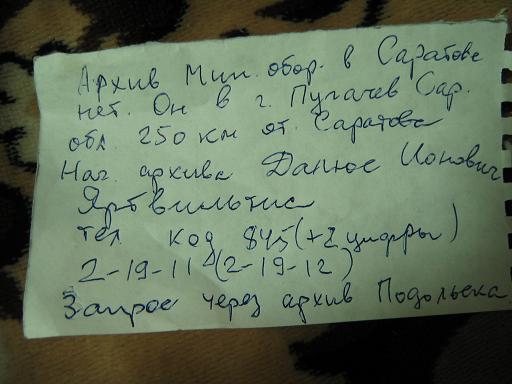 Архив Мин. обор. в Саратове
нет. Он в г. Пугачев Сар.
обл. 250 км от Саратова
Нач. архива Данюс Ионович
Яртвильтис
тел код 845 (+2 цифры)
2-19-11 (2-19-12)
Запрос через архив Подольска